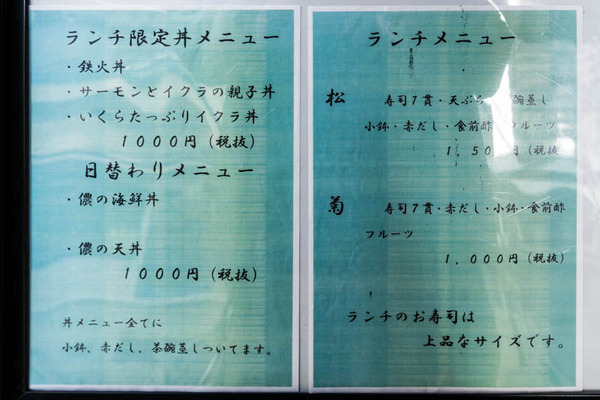 ランチ限定丼メニュー
・鉄火丼
・サーモンとイクラの親子丼
・いくらたっぷりイクラ丼
1000円(税抜)
日替わりメニュー
・儂の海鮮丼
・儂の天丼
1000円(税抜)
丼メニュー全てに
小鉢、赤だし、茶碗蒸しついてます。
ランチメニュー
松 寿司7貫・天ぷら 碗蒸し
小鉢・赤だし・食前酢 フルーツ
1,50 円(税抜
菊 寿司7貫・赤だし・小鉢・食前酢
フルーツ
1,000円(税抜)
ランチのお寿司は
上品なサイズです。